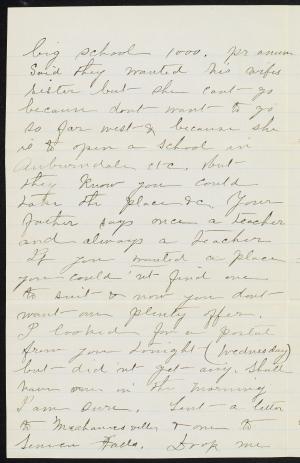 big school 1000. pr annum
Said they wanted his wifes
sister but she cant go
because dont want to go
so far west & because she
is to open a school in
Auburndale etc. but
they know you could
take the place &c. Your
father says once a teacher
and always a teacher
If you wanted a place
you could'nt find one
to suit & now you dont
want one plenty offer.
I looked for a postal
from you tonight (Wednesday)
but did'nt get any. Shall
have one in the morning
I am sure. Sent a letter
to Mechanicsville & one to
Seneca Falls. Drop me